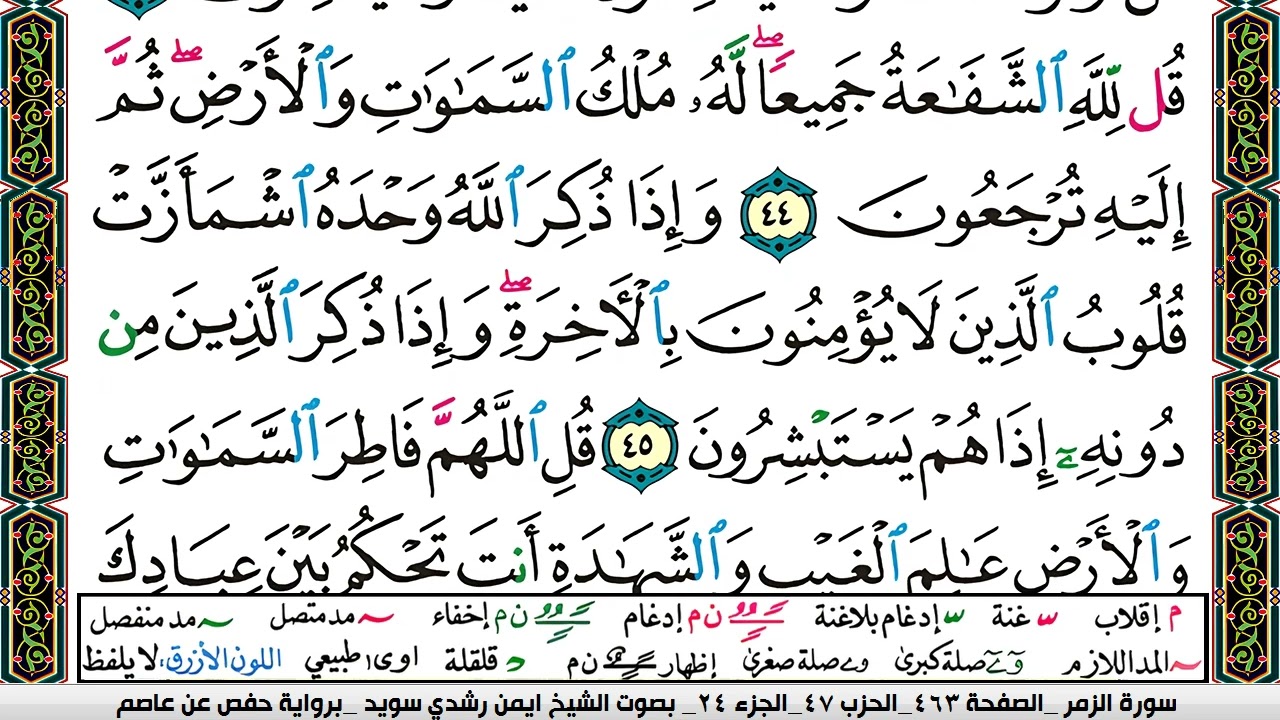 قُل لِّلَّهِ ٱلشَّفَٰعَةُ جَمِيعًاۖ لَّهُۥ مُلْكُ ٱلسَّمَٰوَٰتِ وَٱلْأَرْضِۖ ثُمَّ
إِلَيْهِ تُرْجَعُونَ ٤٤ وَإِذَا ذُكِرَ ٱللَّهُ وَحْدَهُ ٱشْمَأَزَّتْ
قُلُوبُ ٱلَّذِينَ لَا يُؤْمِنُونَ بِٱلْأَخِرَةِۖ وَإِذَا ذُكِرَ ٱلَّذِينَ مِن
دُونِهِۦٓ إِذَا هُمْ يَسْتَبْشِرُونَ ٤٥ قُلِ ٱللَّهُمَّ فَاطِرَ ٱلسَّمَٰوَٰتِ
وَٱلْأَرْضِ عَٰلِمَ ٱلْغَيْبِ وَٱلشَّهَٰدَةِ أَنتَ تَحْكُمُ بَيْنَ عِبَادِكَ
م إقلاب ّ غنة ّ إدغام بلاغنة ـًـٍـٌ ن م إدغام ـًـٍـٌ ن م إخفاء ~ مد متصل ~ مد منفصل
~ المد اللازم و ے صلة كبرى و ے صلة صغرى إظهار ـًـٍـٌ ن م د قلقلة ا و ى طبيعي اللون الأزرق، لا يلفظ
سورة الزمر _الصفحة ٤٦٣_الحزب ٤٧_الجزء ٢٤_ بصوت الشيخ ايمن رشدي سويد _برواية حفص عن عاصم